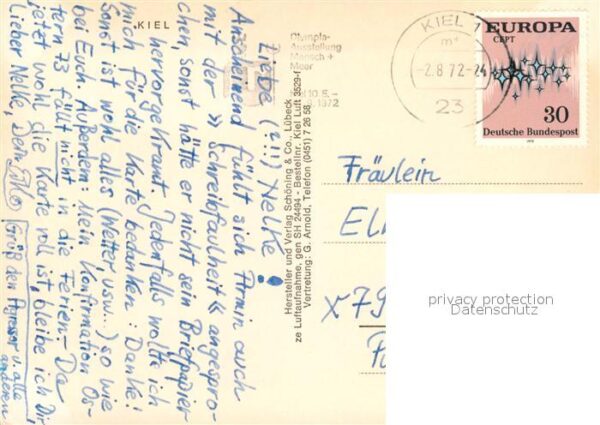 KIEL
Liebe (?!!) Nelke!
Anscheinend fühlt sich Armin auch
mit der "Schreibfaulheit" angespro-
chen, sonst hätte er nicht sein Briefpapier
hervorgekramt. Jedenfalls wollte ich
mich für die Karte bedanken: Danke!
Sonst ist wohl alles (Wetter, usw...) so wie
bei Euch. Außerdem: Mein Konfirmation Os-
tern 73 fällt nicht in die Ferien. Da
jetzt wohl die Karte voll ist, bleibe ich Dir
Lieber Nelke, Dein
Grüß den Agressor u. alle
anderen
Olympia-
Ausstellung
Mensch +
Meer
Kiel 10.6.-
.1972
Hersteller und Verlag Schöning & Co., Lübeck
ze Luftaufnahme, gen SH 24494 - Bestellnr. Kiel Luft 3529-f
Vertretung: G. Arnold, Telefon (0451) 7 26 58
KIEL 1
-2.8.72-24
23
EUROPA
CEPT
30
Deutsche Bundespost
1972
Fräulein
El
X 79
privacy protection
Datenschutz